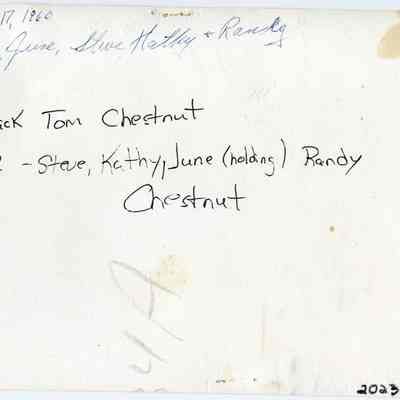 17, 1960
, June, Steve, Kathy & Randy
ack Tom Chestnut
- Steve, Kathy, June (holding) Randy
Chestnut
2023